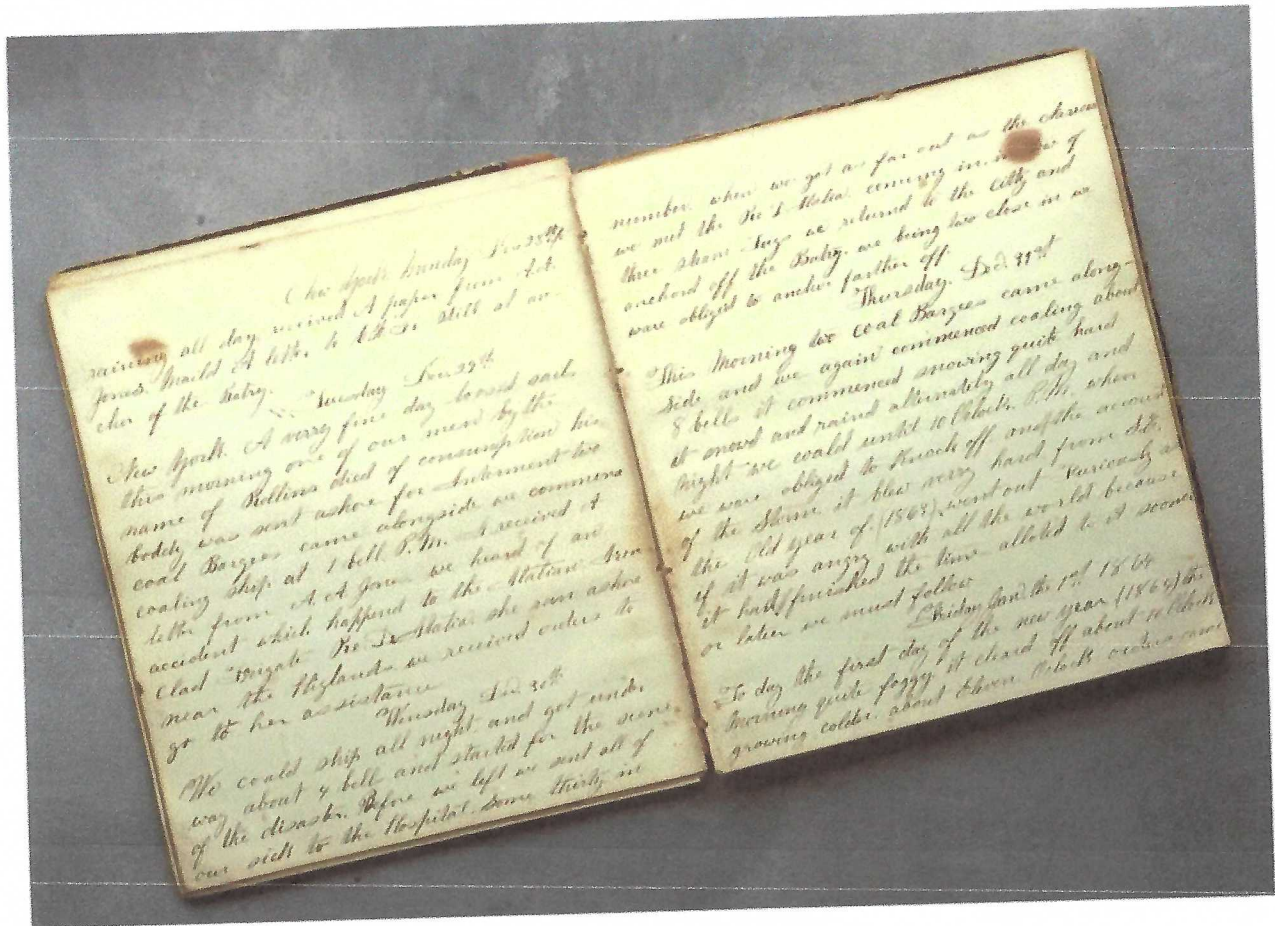 New York. Munday Dec 28th
raining all day. received A paper from A.A.
Jones. Maild A letter to still at an-
chor of the Batry.
Tuesday Dec 29th
New York. A verry fine day loosed sails
this morning one of our men by the
name of Rollins died of consumption his
boddy was sent ashore for Interment two
coal Barges came alongside we commenc
coaling ship at 1 bell. P.M. I received A
letter from A.A. Jones we heard of an
accident which happened to the Italian Iron
Clad Frigate Re De Italia she ran ashore
near the Highlands we received orders to
go to her assistance
Wensday Dec 30th
We coald ship all night and got under
way about 4 bell and started for the scene
of the disaster. Before we left we sent all of
our sick to the Hospital. Some thirty in
number. when we got as far out as the
we met the Re D. Italia coming in in tow of
three steam Tugs we returned to the citty and
anchord off the Batry. we being two close in we
ware obliged to anchor farther off
Thursday. Dec. 31st
This Morning two coal Barges came along-
side and we again commenced coaling about
8 bells it commenced snowing quite hard
it snowd and raind alternately all day and
night we coald until 10 Oclock P.M. when
we were obliged to Knock off on the account
of the Storm it blew verry hard from S.E.
the Old year of (1863) went out Furiously as
if it was angry with all the world because
it had finished the time alloted to it sooner
or later we must follow
Friday Jan. the 1st 1864
To day the first day of the new year (1864) the
Morning quite foggy. it cleard off about 10 Oclock
growing colder. about Eleven Oclock orders came